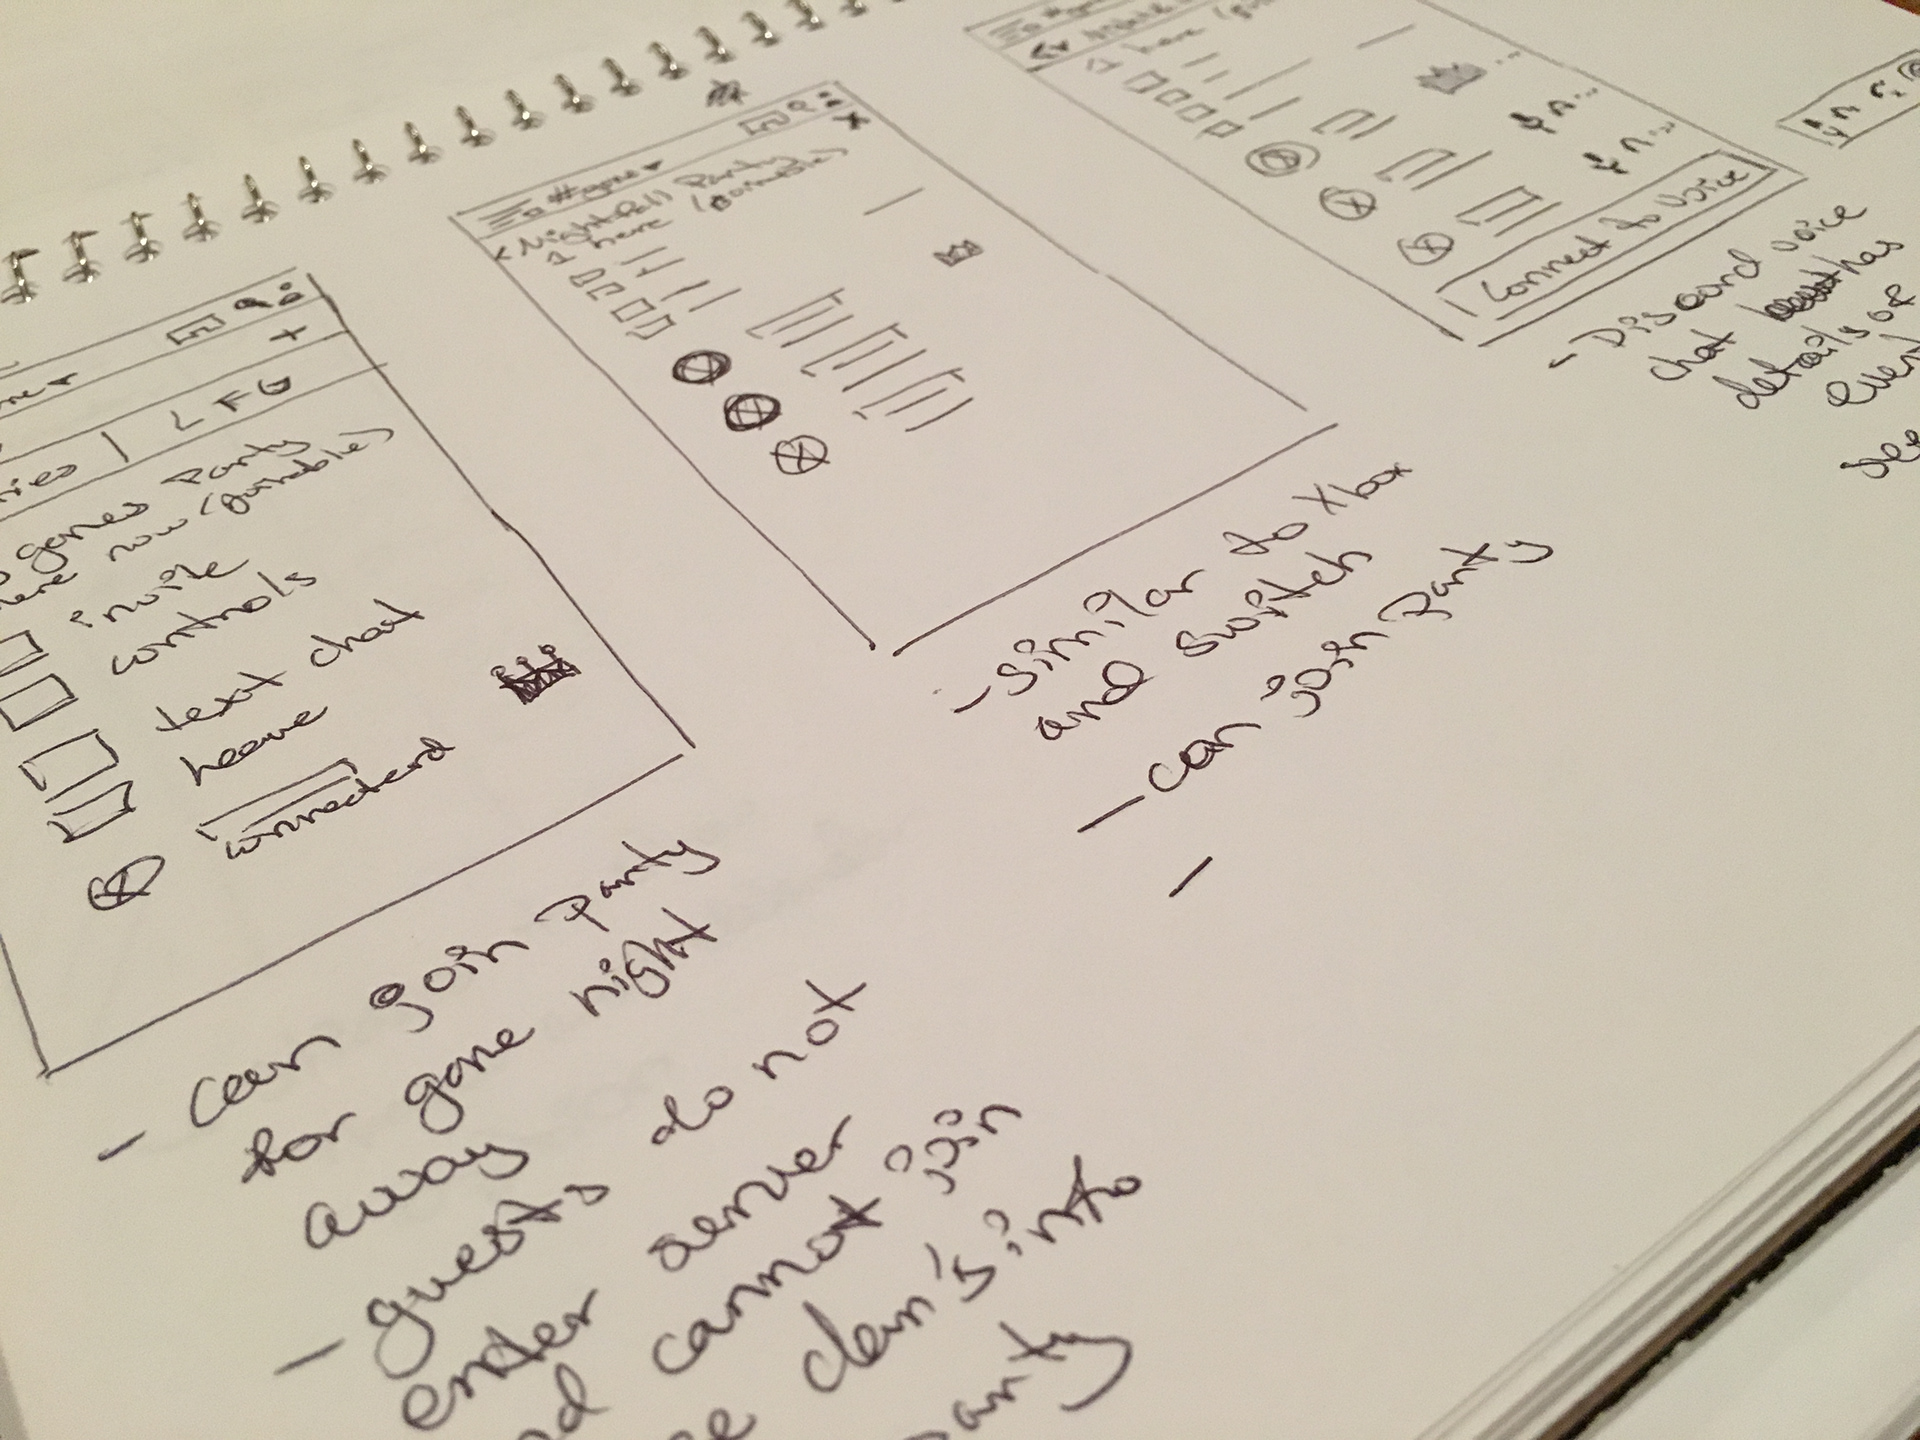 +
LFG
games Party
now (Joinable)
invite
controls
text chat
leave
connected
- can join party
for game night
away
- guests do not
enter server
cannot join
clan's into
party
#game
<Nightfall Party
1 here (Joinable)
X
- similar to Xbox
and switch
- can join party
-
here
Connect to Voice
- Discord voice
chat has
details of
event